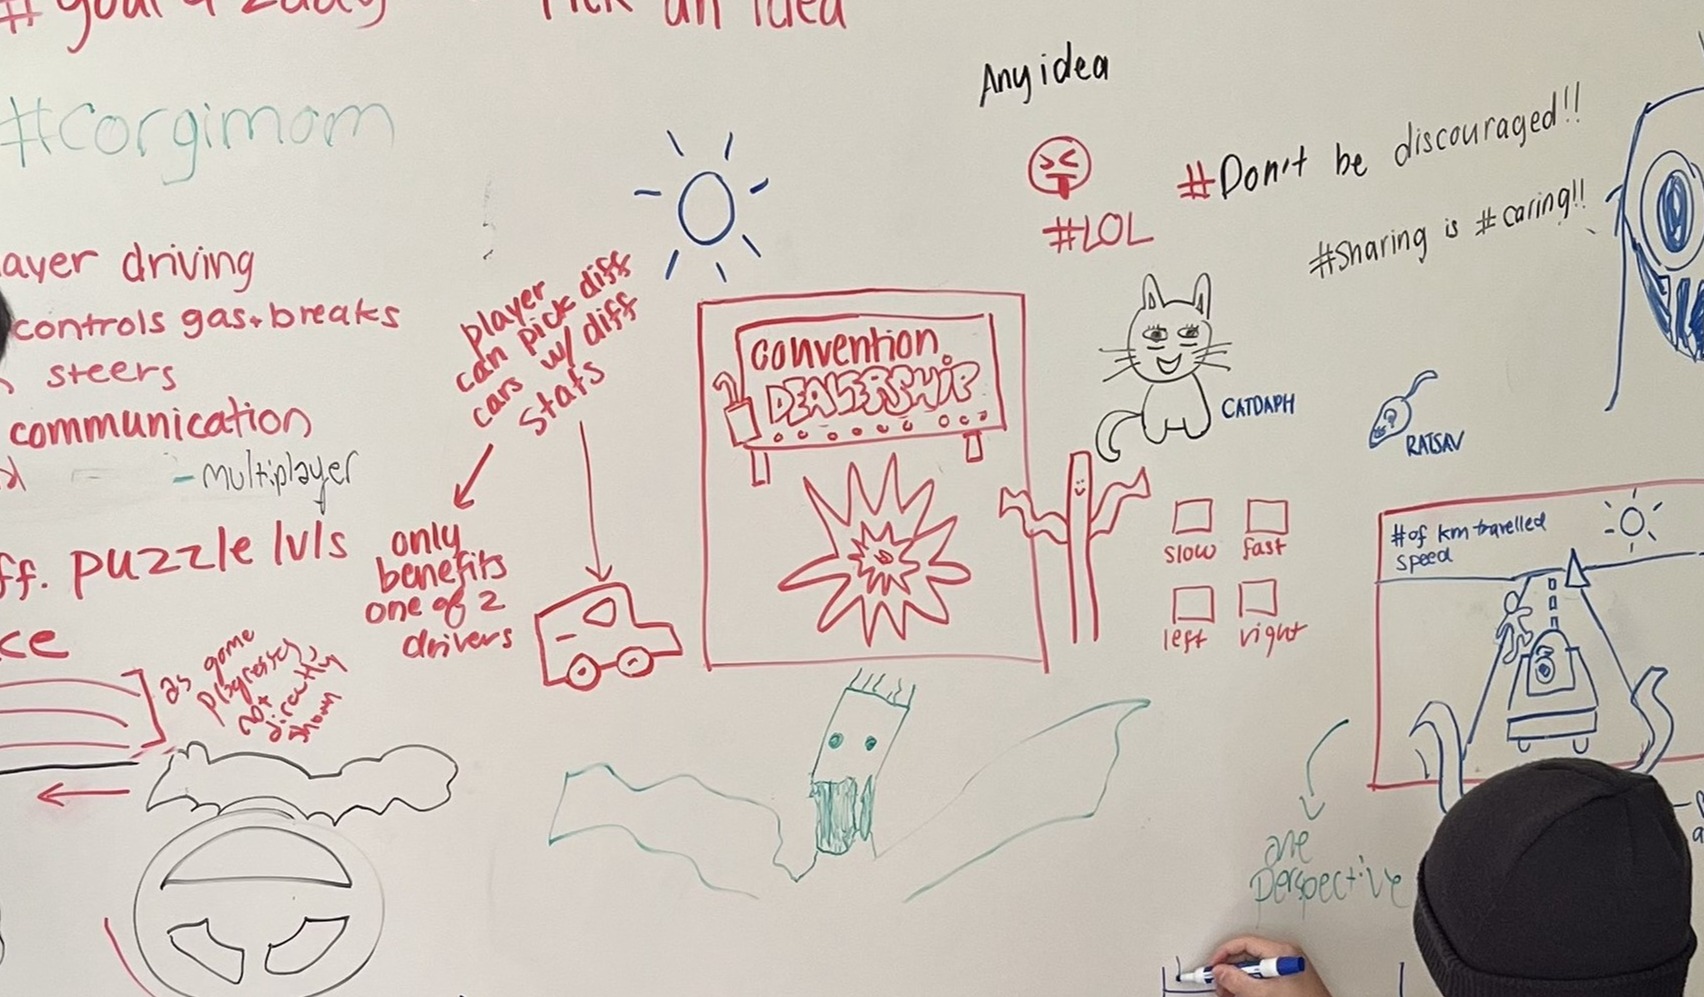 #goal 4 2day
Pick an idea
#corgimom
Any idea
#LOL
#Don't be discouraged!!
#Sharing is #caring!!
ayer driving
controls gas + breaks
steers
communication
- multiplayer
ff. puzzle lvls
ce
player
can pick diff
cars w/ diff
stats
only
benefits
one of 2
drivers
as game
progresses,
not
directly
shown
convention
DEALERSHIP
CATDAPH
RATSAV
slow
fast
left
right
# of km travelled
speed
one
perspective